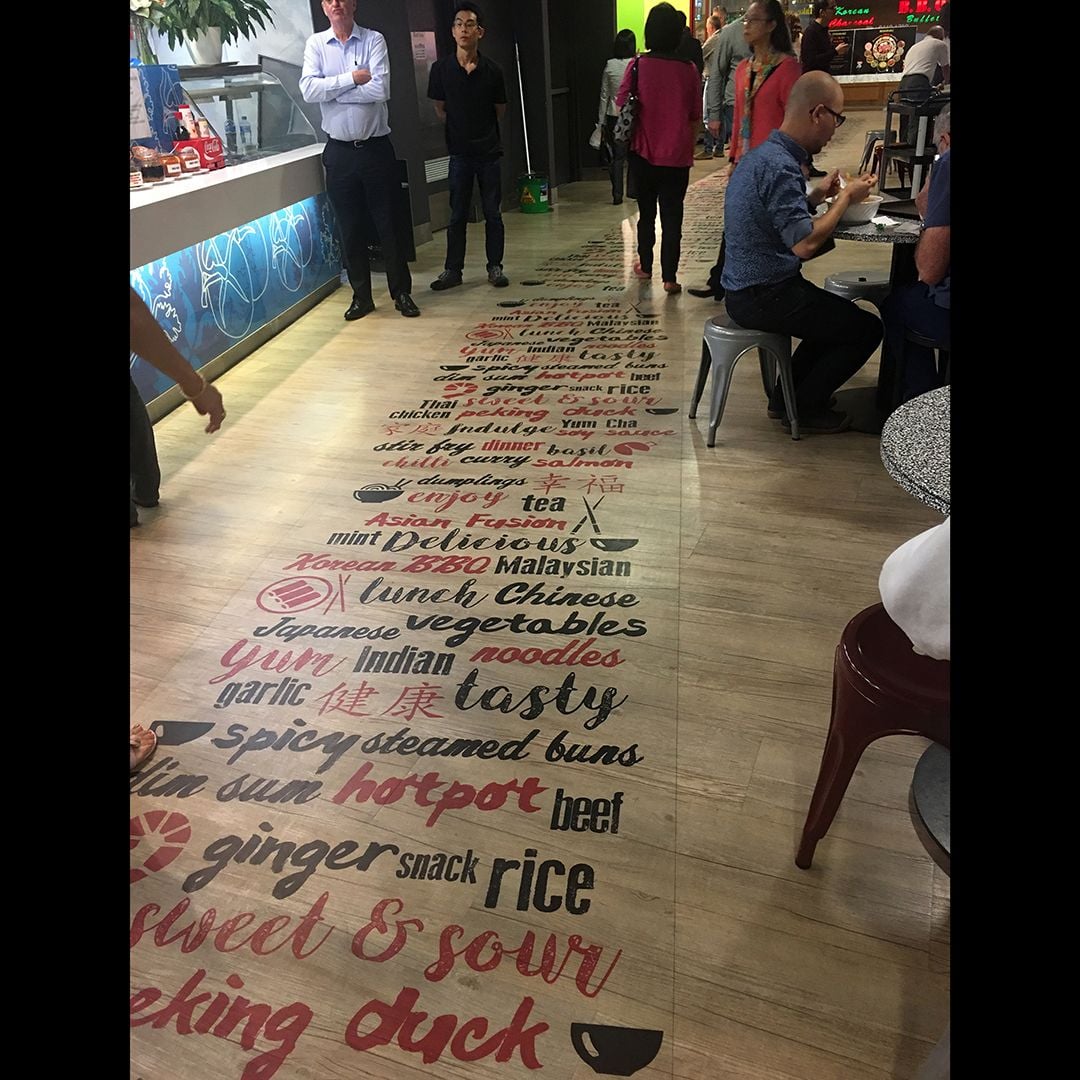 Korean
Charcoal
B.B.Q
Buffet
Coca-Cola
tea
dumplings
enjoy tea
Asian Fusion
mint Delicious
Korean BBQ Malaysian
lunch Chinese
Japanese vegetables
Yum Indian noodles
garlic 健康 tasty
spicy steamed buns
dim sum hotpot beef
ginger snack rice
Thai sweet & sour
chicken peking duck
Indulge Yum Cha
soy sauce
stir fry dinner basil
chilli curry salmon
dumplings 幸福
enjoy tea
Asian Fusion
mint Delicious
Korean BBQ Malaysian
lunch Chinese
Japanese vegetables
Yum Indian noodles
garlic 健康 tasty
spicy steamed buns
dim sum hotpot beef
ginger snack rice
sweet & sour
peking duck